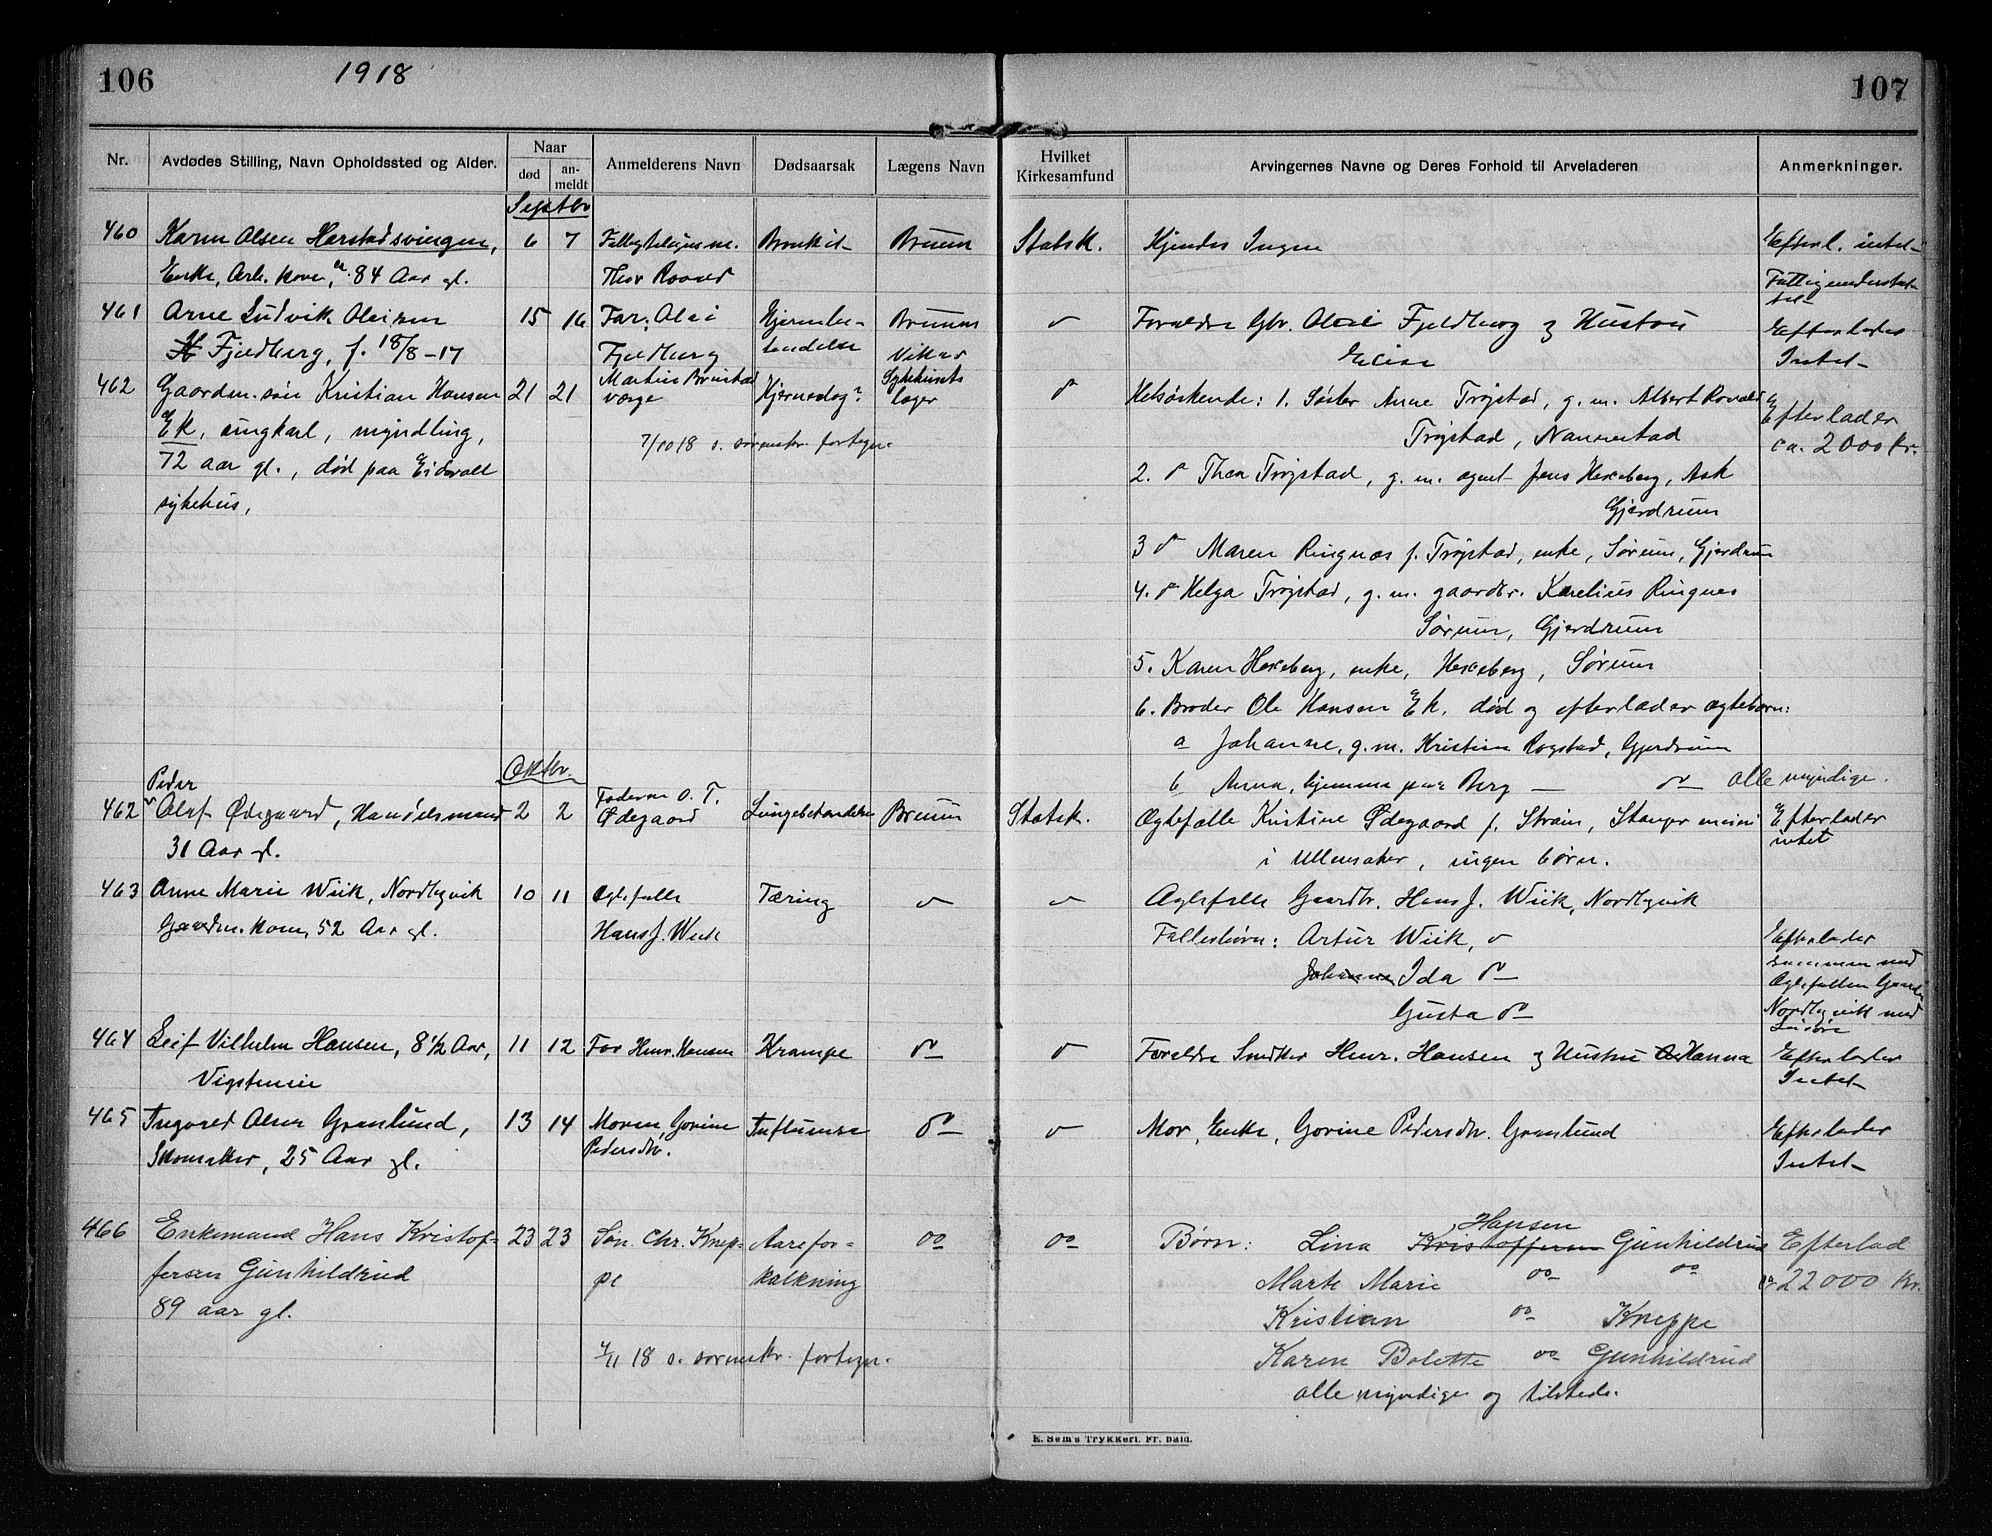 106
1918
107
Nr.
Avdødes Stilling, Navn Opholdssted og Alder.
Naar
død
an-
meldt
Anmelderens Navn
Dødsaarsak
Lægens Navn
Hvilket
Kirkesamfund
Arvingernes Navne og Deres Forhold til Arveladeren
Anmerkninger.
Septbr
460 Karen Olsen Harstadsvingen, 6 7 Bronkit Bruun Statsk. Kjendes Ingen Efterl. intet
Enke, Arb. kone, 84 Aar gl. Thor Roaad
Fattigunderstøt-
tet
461 Arne Ludvik Olsen 15 16 Far, Olai Hjernebe- Bruun Foreldre Gbr. Olai Fjeldberg og Hustru Efterlader
Fjeldberg, f. 18/8-17 Fjeldberg tendelse Vikar Elise Intet
462 Gaardm. søn Kristian Hansen 21 21 Martin Brustad Hjerneslag? Sykehusets Helsøskende: 1. Søster Anne Trøjstad, g. m. Albert Efterlader
verge læger
Ek, ungkarl, myndling, 7/10 18 s. sorenskr. fortegn. Trøjstad, Nannestad ca. 2000 kr.
72 aar gl., død paa Eidsvoll 2. do Thea Trøjstad, g. m. agent Jens Hexeberg, Ask
sykehus, Gjerdrum
3 do Maren Ringnæs f. Trøjstad, enke, Sørum, Gjerdrum
4. do Helga Trøjstad, g. m. gaardbr. Karelius Ringnes
Sørum, Gjerdrum
5. Karen Hexeberg, enke, Hexeberg, Sørum
6. Broder Ole Hansen Ek, død og efterlader ægtebørn:
a Johanne, g. m. Kristian Rogstad, Gjerdrum
Oktbr.
b Anna, hjemme paa Berg — do — alle myndige.
Peder
462 Olaf Ødegaard, Handelsmand 2 2 Faderen O. T. Lungebetændelse Bruun Statsk. Ægtefælle Kristine Ødegaard f. Strøm, Stanger i Efterlader
Ødegaard intet
31 Aar gl. i Ullensaker, ingen børn.
463 Anne Marie Wiik, Nordbyvik 10 11 Ægtefælle Tæring Ægtefælle Gaardbr. Hans J. Wiik, Nordbyvik
Gaardm. kone, 52 Aar gl. Hans J. Wiik Fællesbørn: Artur Wiik, Efterlader
sammen med
Johanne Ida do Ægtefællen Gaarden
Gusta do Nordbyvik med
Løsøre
464 Leif Vilhelm Hansen, 8 1/2 Aar, 11 12 Far Henr. Hansen Krampe do Foreldre Snedker Henr. Hansen og Hustru Hanna Efterlader
Vigstenen Intet
465 Ingvald Olsen Granlund, 13 14 Moren Gorine Influensa do Mor, Enke, Gorine Pedersdtr. Granlund Efterlader
Skomaker, 25 Aar gl. Pedersdtr. Intet
466 Enkemand Hans Kristof- 23 23 Søn Chr. Knep- Aarefor- do do Børn: Lina Kristoffersen Hansen Gunhildrud Efterlad
fersen Gunhildrud pe kalkning Marte Marie do do ca 22000 Kr.
89 aar gl. Kristian do Kneppe
4/11 18 s. sorenskr. fortegn. Karen Bolette do Gunhildrud
alle myndige og tilstede.
E. Sem's Trykkeri, Fr. hald.